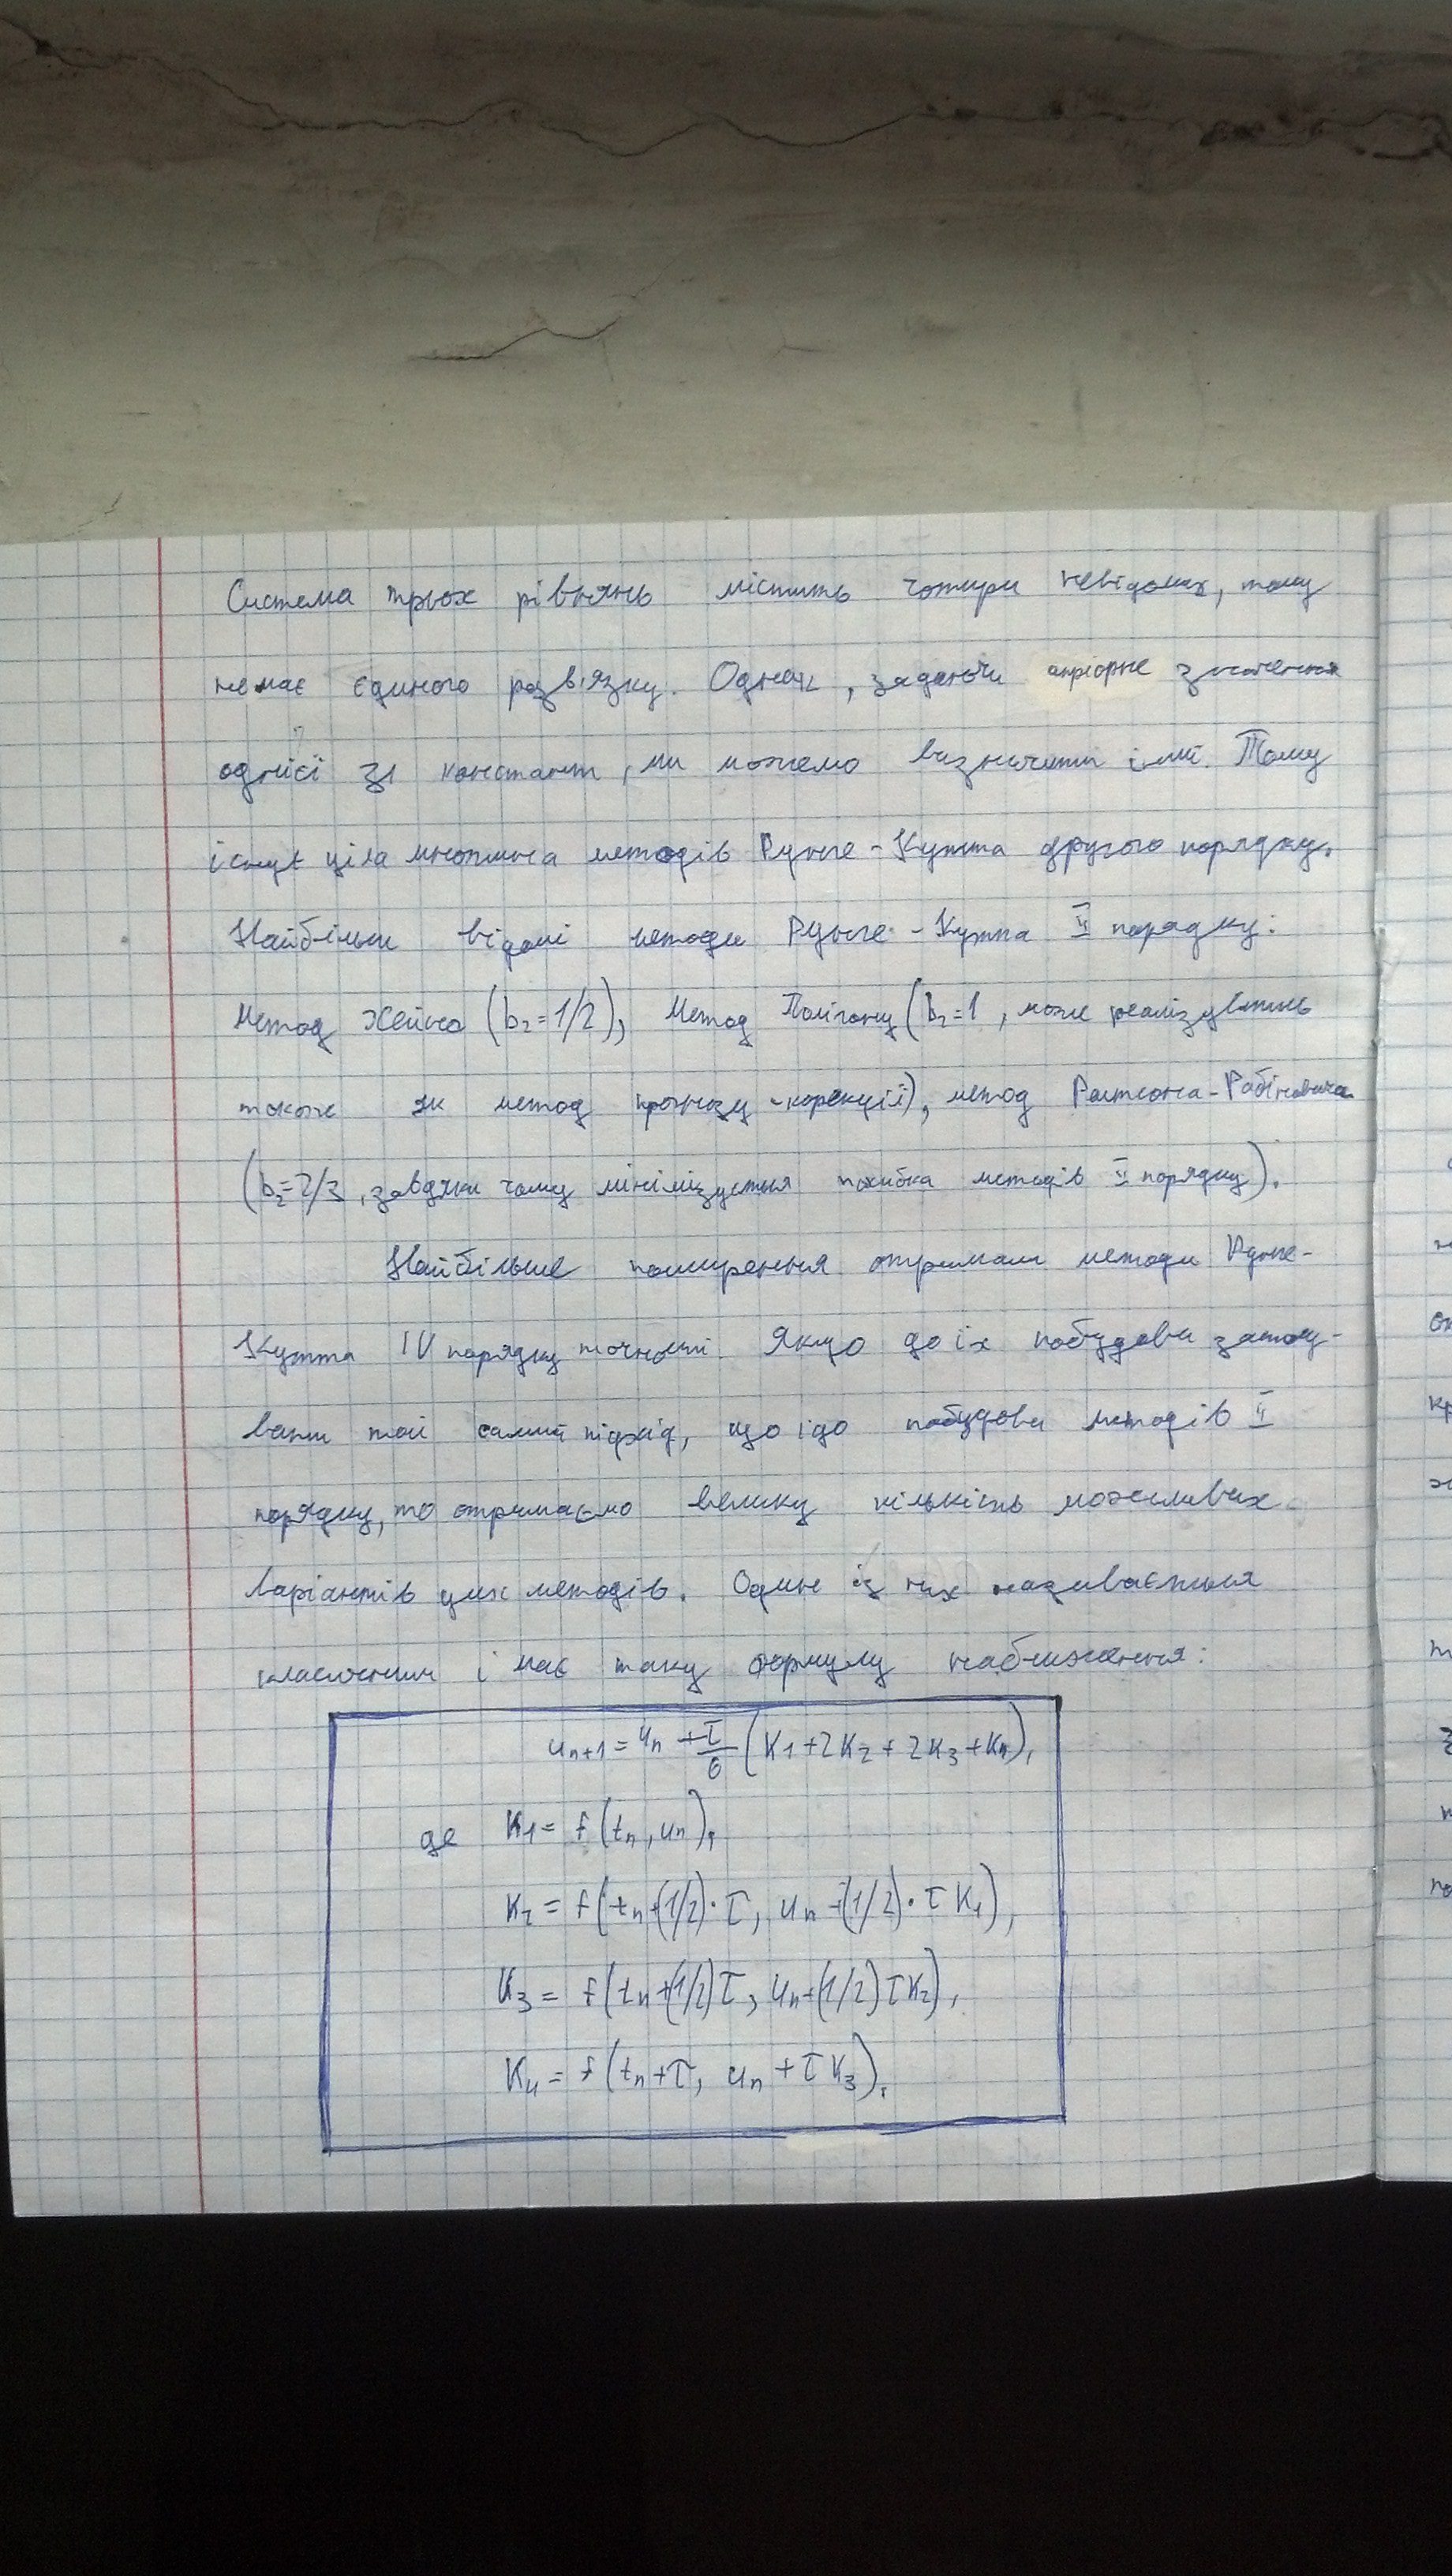 Система трьох рівнянь містить чотири невідомих, тому
немає єдиного розв'язку. Однак, задаючи апріорне значення
однієї зі констант, ми можемо визначити інші. Тому
існує ціла множина методів Рунге-Кутта другого порядку.
Найбільш відомі методи Рунге-Кутта II порядку:
Метод Хейна (b₂=1/2), Метод Полігону (b₂=1, може реалізуватись
також як метод прогнозу-корекції), метод Ралтсона-Рабіновича
(b₂=2/3, завдяки чому мінімізується похибка методів II порядку).
Найбільше поширення отримали методи Рунге-
Кутта IV порядку точності. Якщо до їх побудови засто-
вати той самий підхід, що і до побудови методів II
порядку, то отримаємо велику кількість можливих
варіантів цих методів. Один із них називається
класичним і має таку формулу наближення:
uₙ₊₁ = uₙ + τ/6 (K₁+2K₂+2K₃+K₄),
де K₁ = f(tₙ, uₙ),
K₂ = f(tₙ+(1/2)·τ, uₙ+(1/2)·τK₁),
K₃ = f(tₙ+(1/2)τ, uₙ+(1/2)τK₂),
K₄ = f(tₙ+τ, uₙ+τK₃).